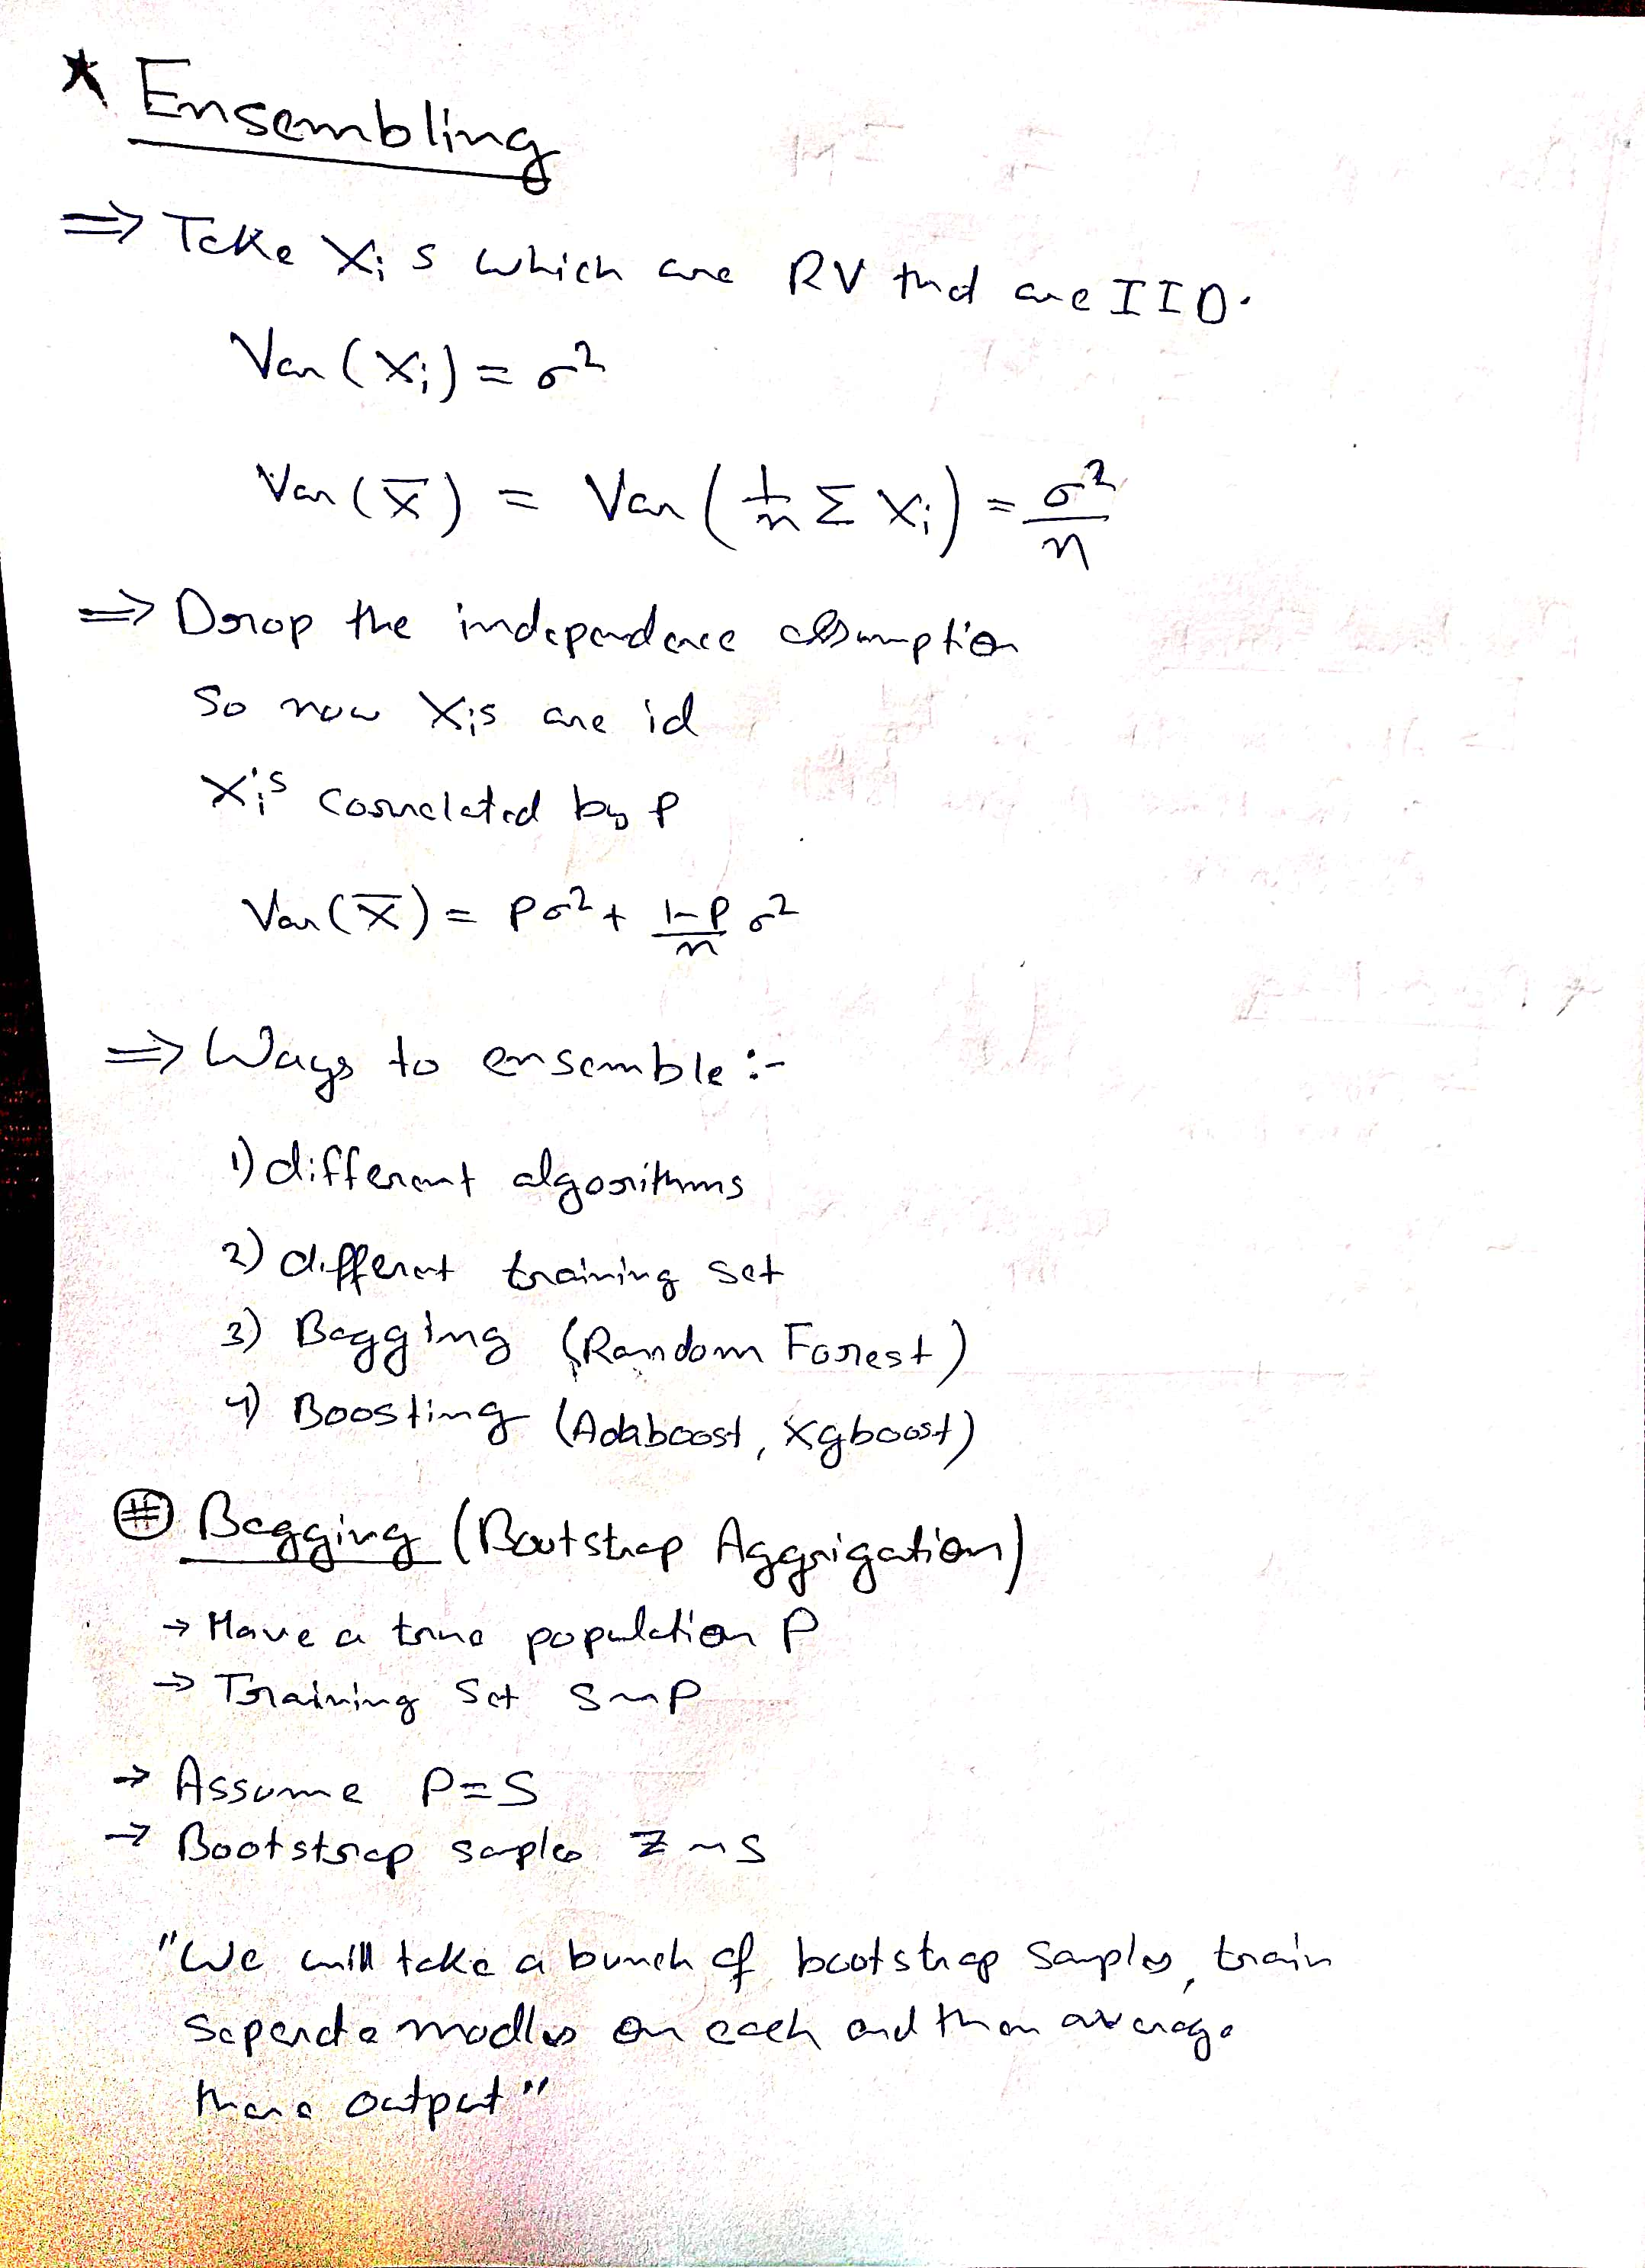 * Ensembling
⇒ Take Xi s which are RV that are IID.
Var(Xi) = σ²
Var(X̄) = Var(1/n Σ Xi) = σ²/n
⇒ Drop the independence assumption
So now Xis are id
Xi's correlated by ρ
Var(X̄) = ρσ² + 1-ρ/n σ²
⇒ Ways to ensemble :-
1) different algorithms
2) different training set
3) Bagging (Random Forest)
4) Boosting (Adaboost, Xgboost)
# Bagging (Bootstrap Aggrigation)
→ Have a true population P
→ Training Set S ~ P
→ Assume P = S
→ Bootstrap samples Z ~ S
"We will take a bunch of bootstrap samples, train
seperate modles on each and then average
there output"